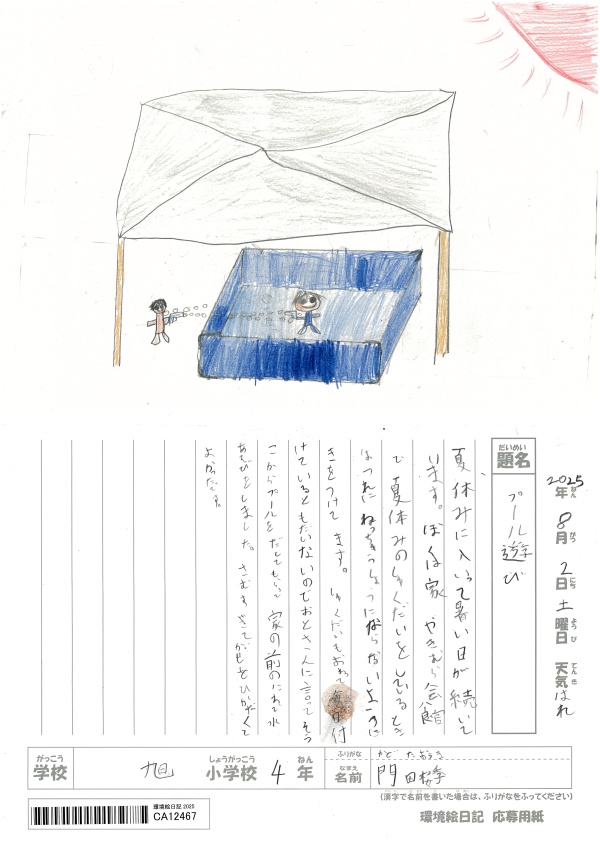 2025年 8月 2日 土曜日 天気 はれ
ねん がつ にち ようび てんき
だいめい
題名
プール遊び
夏休みに入って暑い日が続いて
います。ぼくは家 やきむら会館
で夏休みのしゅくだいをしているとき
は
ねっちゅうしょうにならないように
きをつけて ます。しゅくだいもおわって 毎日付
けているともたいないのでおとうさんに言ってそう
こからプールをだしてもらって 家の前のにわで水
あそびをしました。さむすぎてかぜをひかなくて
よかったです。
がっこう
学校
旭
しょうがっこう
小学校
4
ねん
年
ふりがな
かど
なまえ
名前
門田
(漢字で名前を書いた場合は、ふりがなをふってください)
環境絵日記 2025
CA12467
環境絵日記 応募用紙